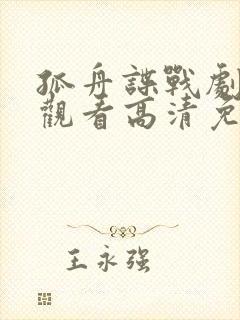 孤舟諜戰劇
觀看高清免
王永强